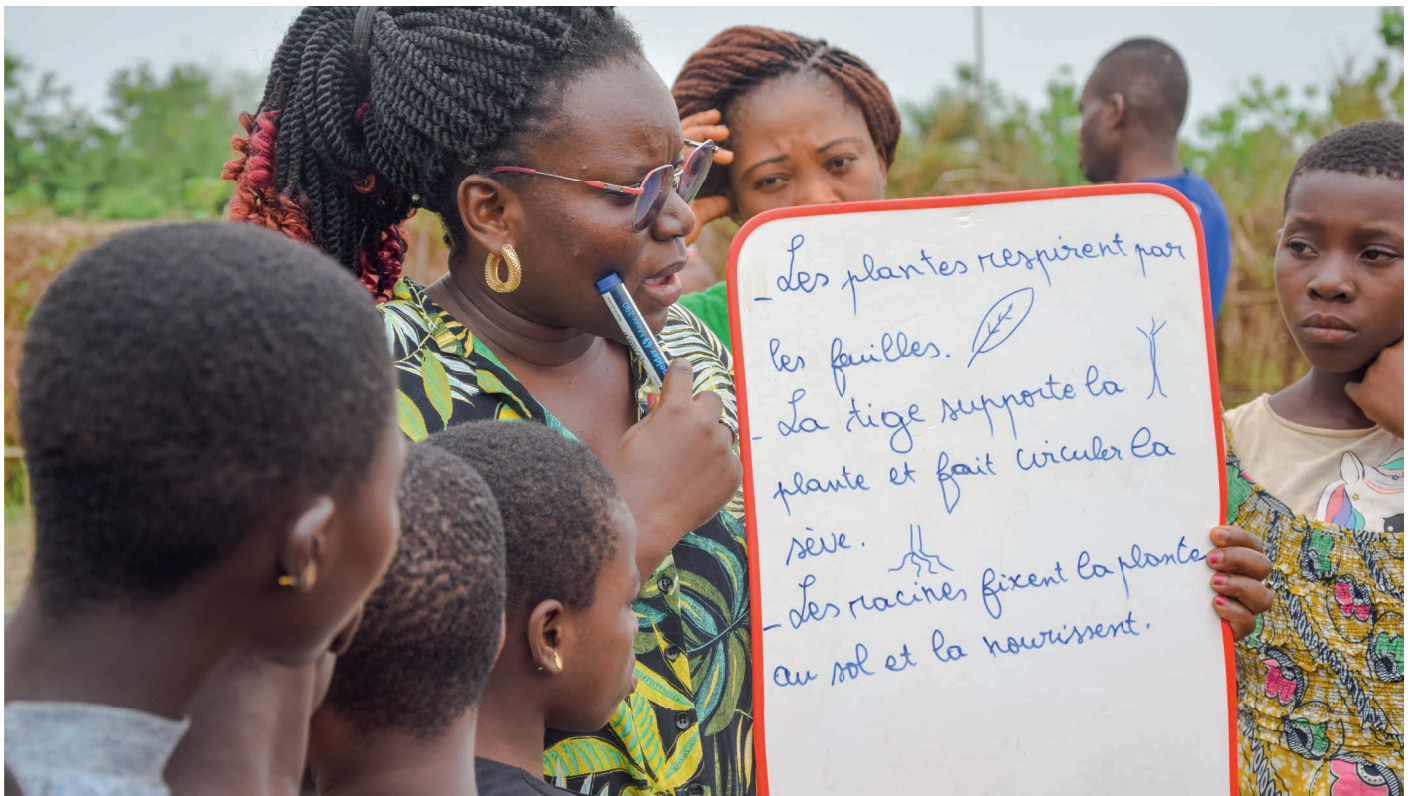 _ Les plantes respirent par
les feuilles.
_ La tige supporte la
plante et fait circuler la
sève.
_ Les racines fixent la plante
au sol et la nourissent.